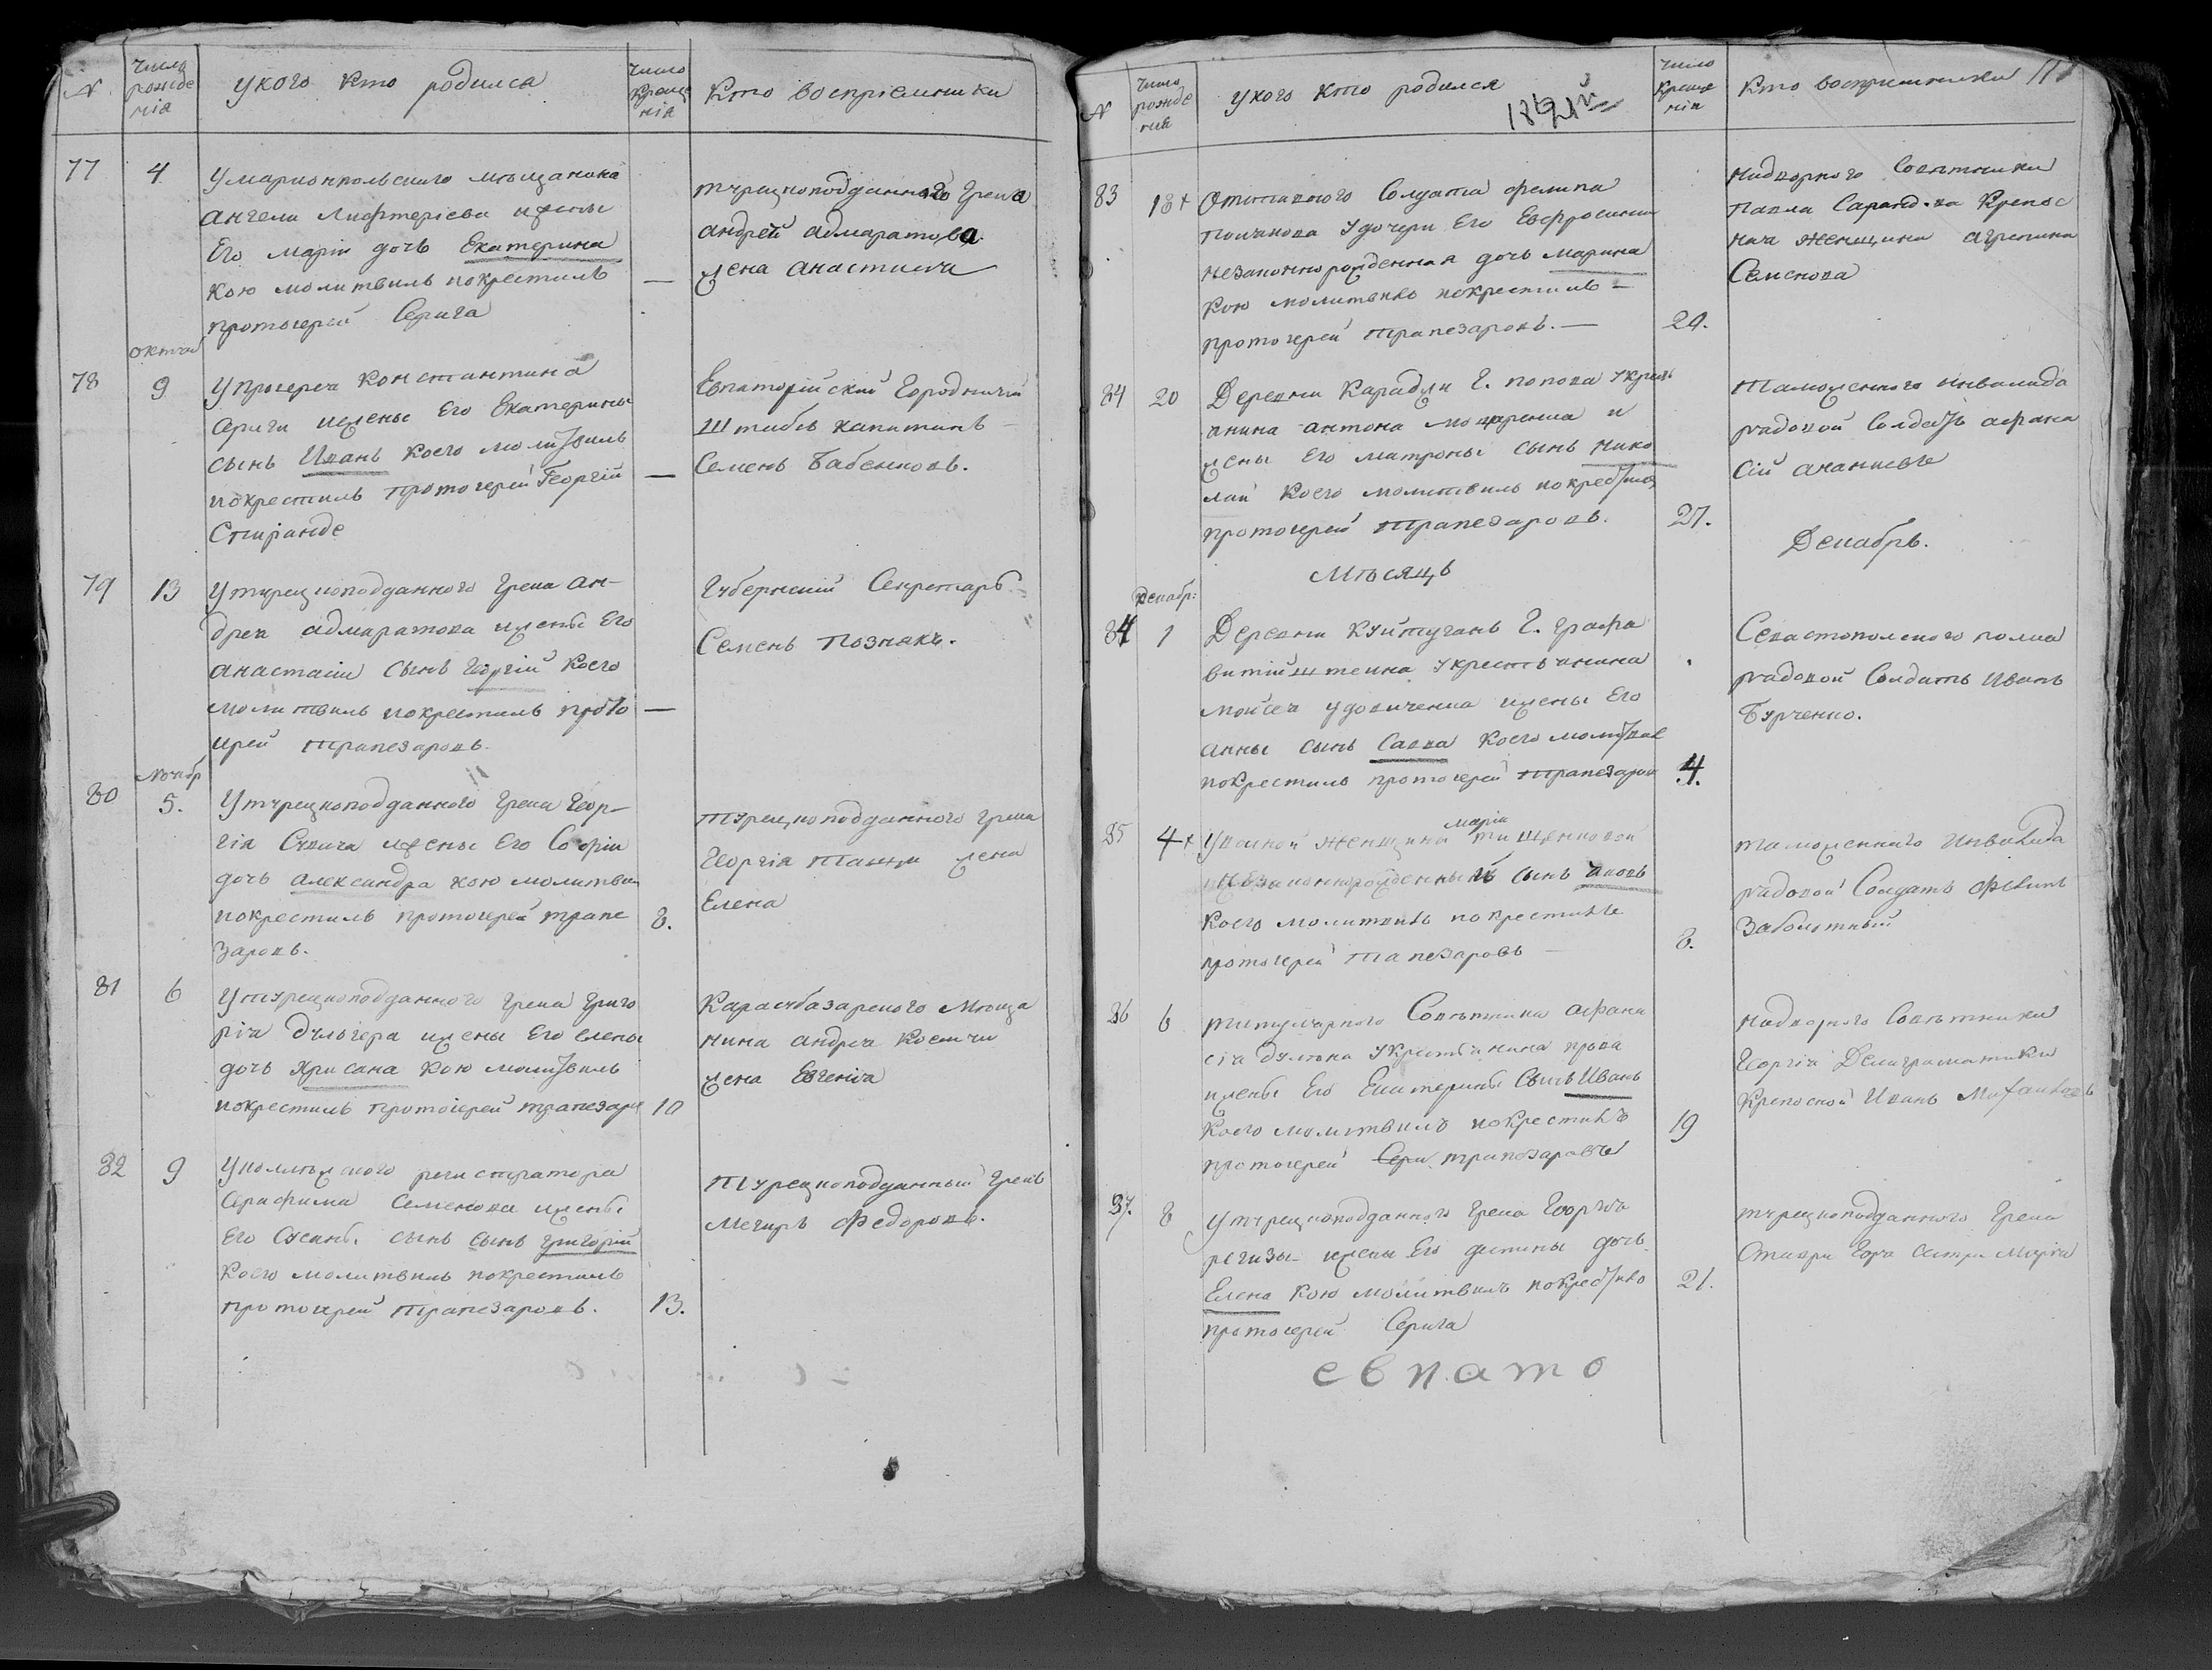 N Число рожде нія У кого кто родился Число Креще нія Кто воспріемники
77 4 У мариопольского мѣщанина
ангели Лифтеріева ижены
Его маріи дочь Екатерина
кою молитвилъ покрестилъ —
протоіерей Серига
турецкоподданного Грека
андрей адмаратова
жена анастасия
октяб
78 9 У Проіерея Константина
Сериги ижены Его Екатерины
сынъ Иванъ коего молитвилъ
покрестилъ Протоіерей Георгій —
Спиранде
Евпаторійский Городничий
Штабсъ капитанъ
Семенъ Бабенковъ.
79 13 У турецкоподданного Грека Ан-
дрея адмаратова ижены Его
анастасіи сынъ Георгій коего
молитвилъ покрестилъ прото —
ирей Трапезаровъ.
Губернский Секретарь
Семенъ Познакъ.
Ноябр
80 5. У турецкоподданного Грека Геор-
гія ижены Его Софіи
дочь александра кою молитвил
покрестилъ протоіерей трапе 8.
заровъ.
турецкоподданного грека
Георгія жена
Елена
81 6 У турецкоподданного Грека Григо
рія дульгера ижены Его елены
дочь Хрисана кою молитвилъ
покрестилъ протоіерей трапезаро 10
Карасубазарского Мѣща
нина андрея Костичи
жена Евгенія
82 9 У колѣжского регистратора
Серафима Семенова ижены
Его Сусаны. сынъ сынъ григорій
коего молитвилъ покрестилъ
протоіерей трапезаровъ. 13.
Турецкоподданный Грекъ
Мегиръ Федоровъ.
N Число рожде ния У кого кто родился 1821й Число Креще нія Кто воспріемники 111
83 18+ Отставного Солдата филипа
Полчанова У дочери Его Евфросинии
незаконнорожденная дочь Марина
кою молитвилъ покрестилъ —
протоіерей трапезаровъ. — 20.
Надворного Совѣтника
Павла Крепос
ная женщина агрепина
Семенова
84 20 Деревни Караджи Г. попова У крест
анина антона и
жены Его матроны сынъ Нико
лай коего молитвилъ покрестилъ
протоіерей трапезаровъ. 27.
Таможенного инвалида
рядовой Солдатъ афана
сій ананиевъ
Мѣсяцъ Декабрь.
Декабр:
84 1 Деревни Куйтуганъ Г. графа
витийштеина У крестьянина
Мойсея удовиченка ижены Его
анны сынъ Савва коего молитвил
покрестилъ протоіерей Трапезаров 4.
Севастопольского полка
рядовой Солдатъ Иванъ
Бурченко.
85 4+ У вольной женщины марии тищенковой
незаконнорожденный сынъ яковъ
коего молитвилъ покрестилъ
протоіерей тапезаровъ — 8.
таможенного Инвалида
рядовой Солдатъ Филипъ
Заболотный
86 6 титулярного Совѣтника афана
сія У крестьянина прова
ижены Его Екатерины Сынъ Иванъ
коего молитвилъ покрестилъ 19
протоіерей Сери трапезаровъ
надворного Совѣтника
Георгія Делаграматика
Крепосной Иванъ
87. 8 У турецкоподданного Грека Георгія
регизы ижены Его дочь
Елена кою молитвилъ покрестилъ 21.
протоіерей Серига
турецкоподданного Грека
Ставри сестра Марія
евпато